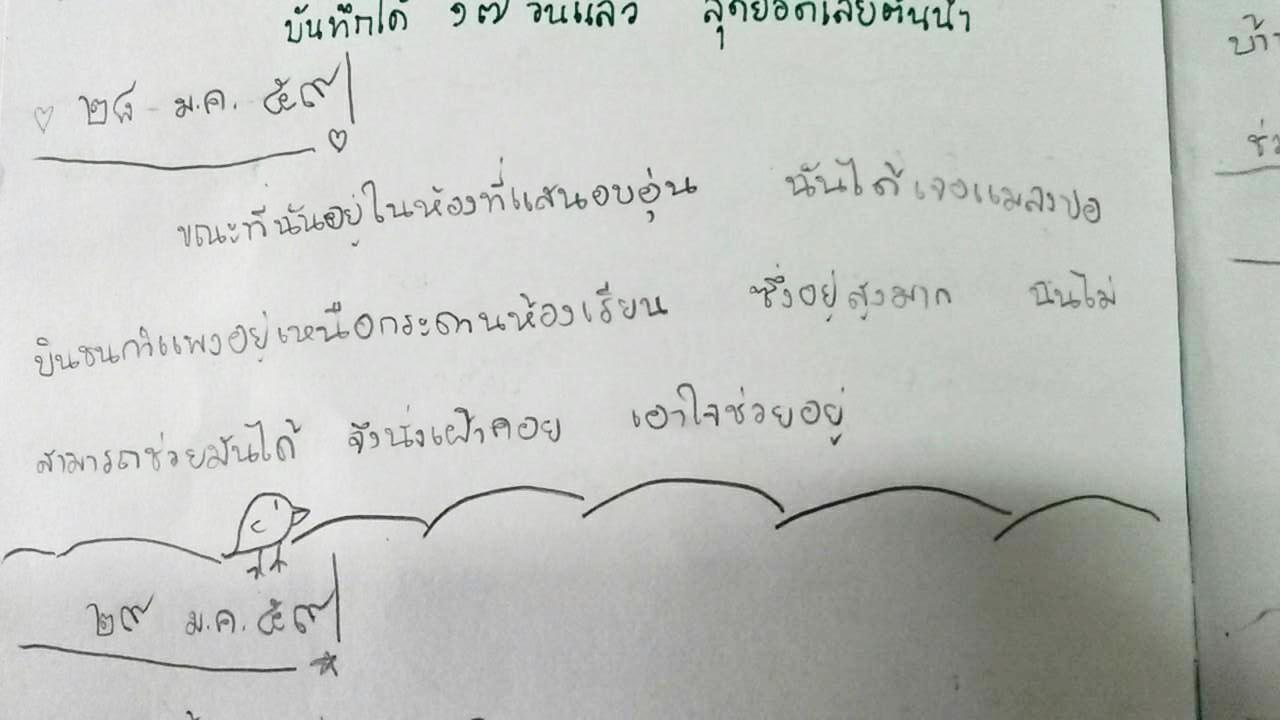 บันทึกได้ ๑๗ วันแล้ว สุดยอดเลยต้นน้ำ
๒๘ ม.ค. ๕๙
ขณะที่ฉันอยู่ในห้องที่แสนอบอุ่น ฉันได้เจอแมลงปอ
บินชนกำแพงอยู่เหนือกระดานห้องเรียน ซึ่งอยู่สูงมาก ฉันไม่
สามารถช่วยมันได้ จึงนั่งเฝ้าคอย เอาใจช่วยอยู่
๒๙ ม.ค. ๕๙